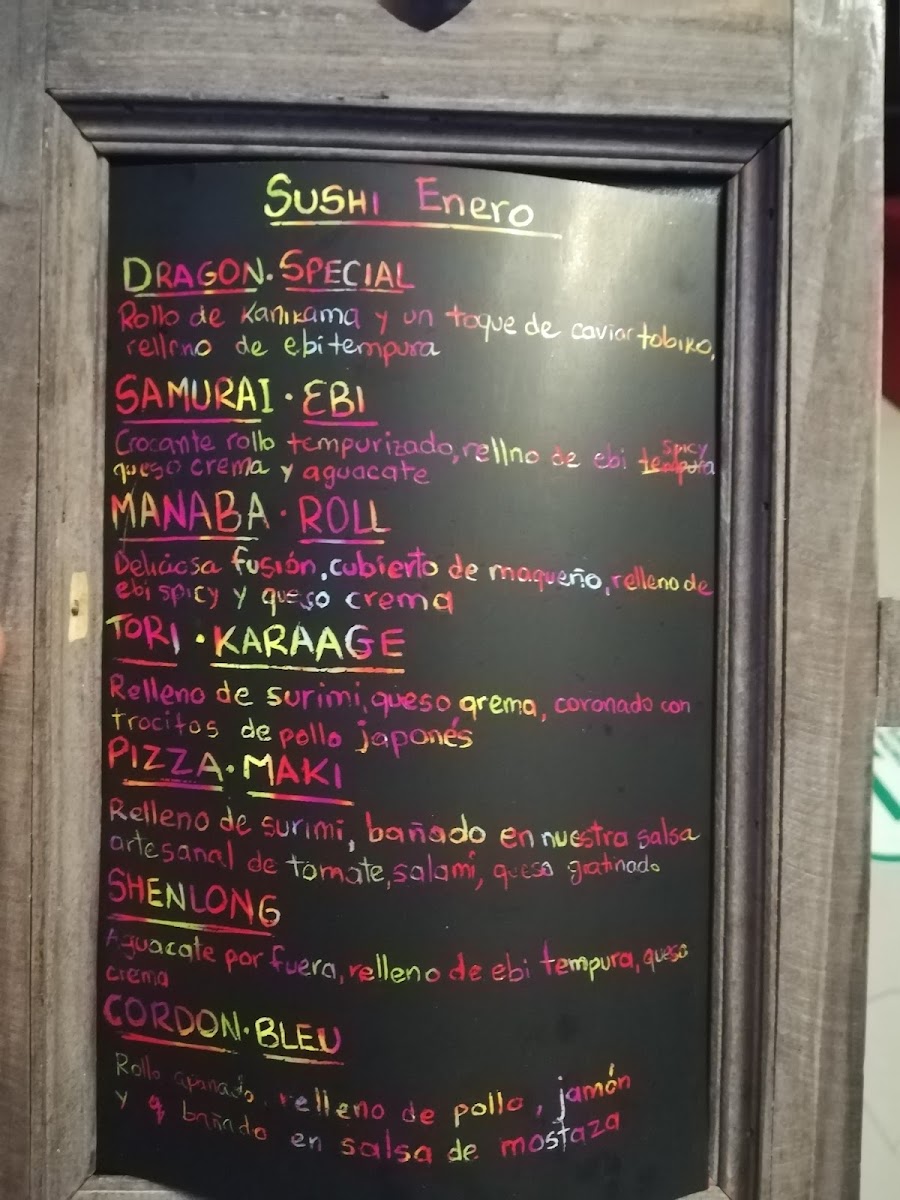 SUSHI Enero
DRAGON. SPECIAL
Rollo de Kanikama y un toque de caviar tobiko,
relleno de ebi tempura
SAMURAI. EBI
Crocante rollo tempurizado, rellno de ebi spicy
queso crema y aguacate
MANABA. ROLL
Deliciosa fusión, cubierto de maqueño, relleno de
ebi spicy y queso crema
TORI. KARAAGE
Relleno de surimi, queso qrema, coronado con
trocitos de pollo japonés
PIZZA. MAKI
Relleno de surimi, bañado en nuestra salsa
artesanal de tomate, salami, queso gratinado
SHENLONG
Aguacate por fuera, relleno de ebi tempura, queso
crema
CORDON. BLEU
Rollo apanado, relleno de pollo, jamón
y q bañado en salsa de mostaza